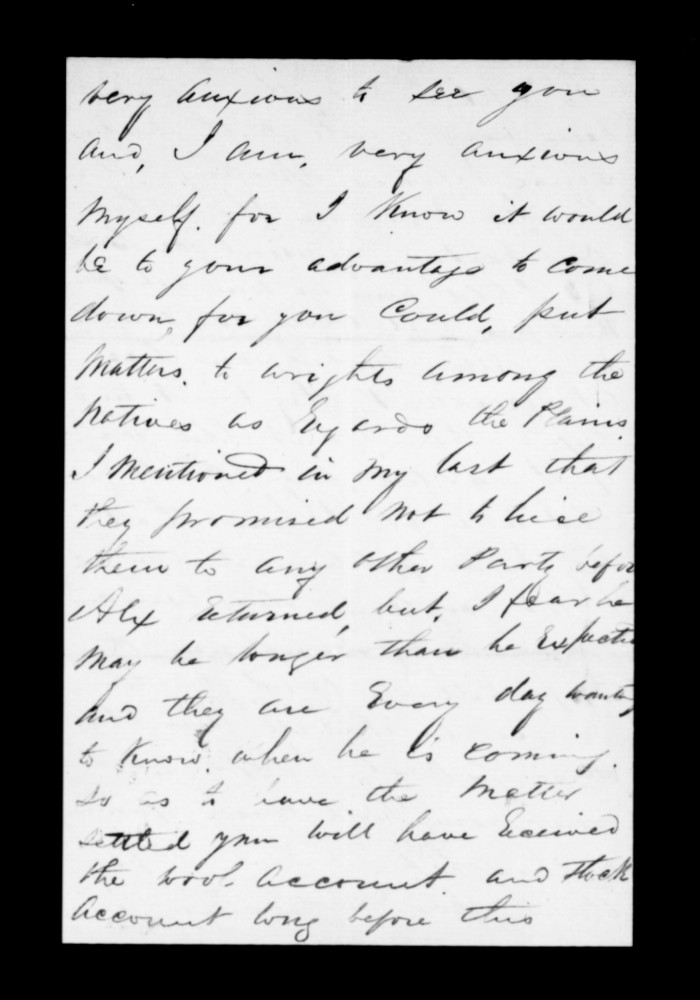 very anxious to see you
and, I am, very anxious
Myself. for I Know it would
be to your advantage to come
down, for you Could, put
Matters. to wrights among the
Natives as Regards the Plains
I Mentioned in My last that
they promised Not to
them to any other Party before
Alex returned, but, I fear he
May be longer than he Expected
and they are Every day wanting
to Know. when he is coming.
so as to have the Matter
settled you Will have Received
the wool. account. and Stock
Account long before this